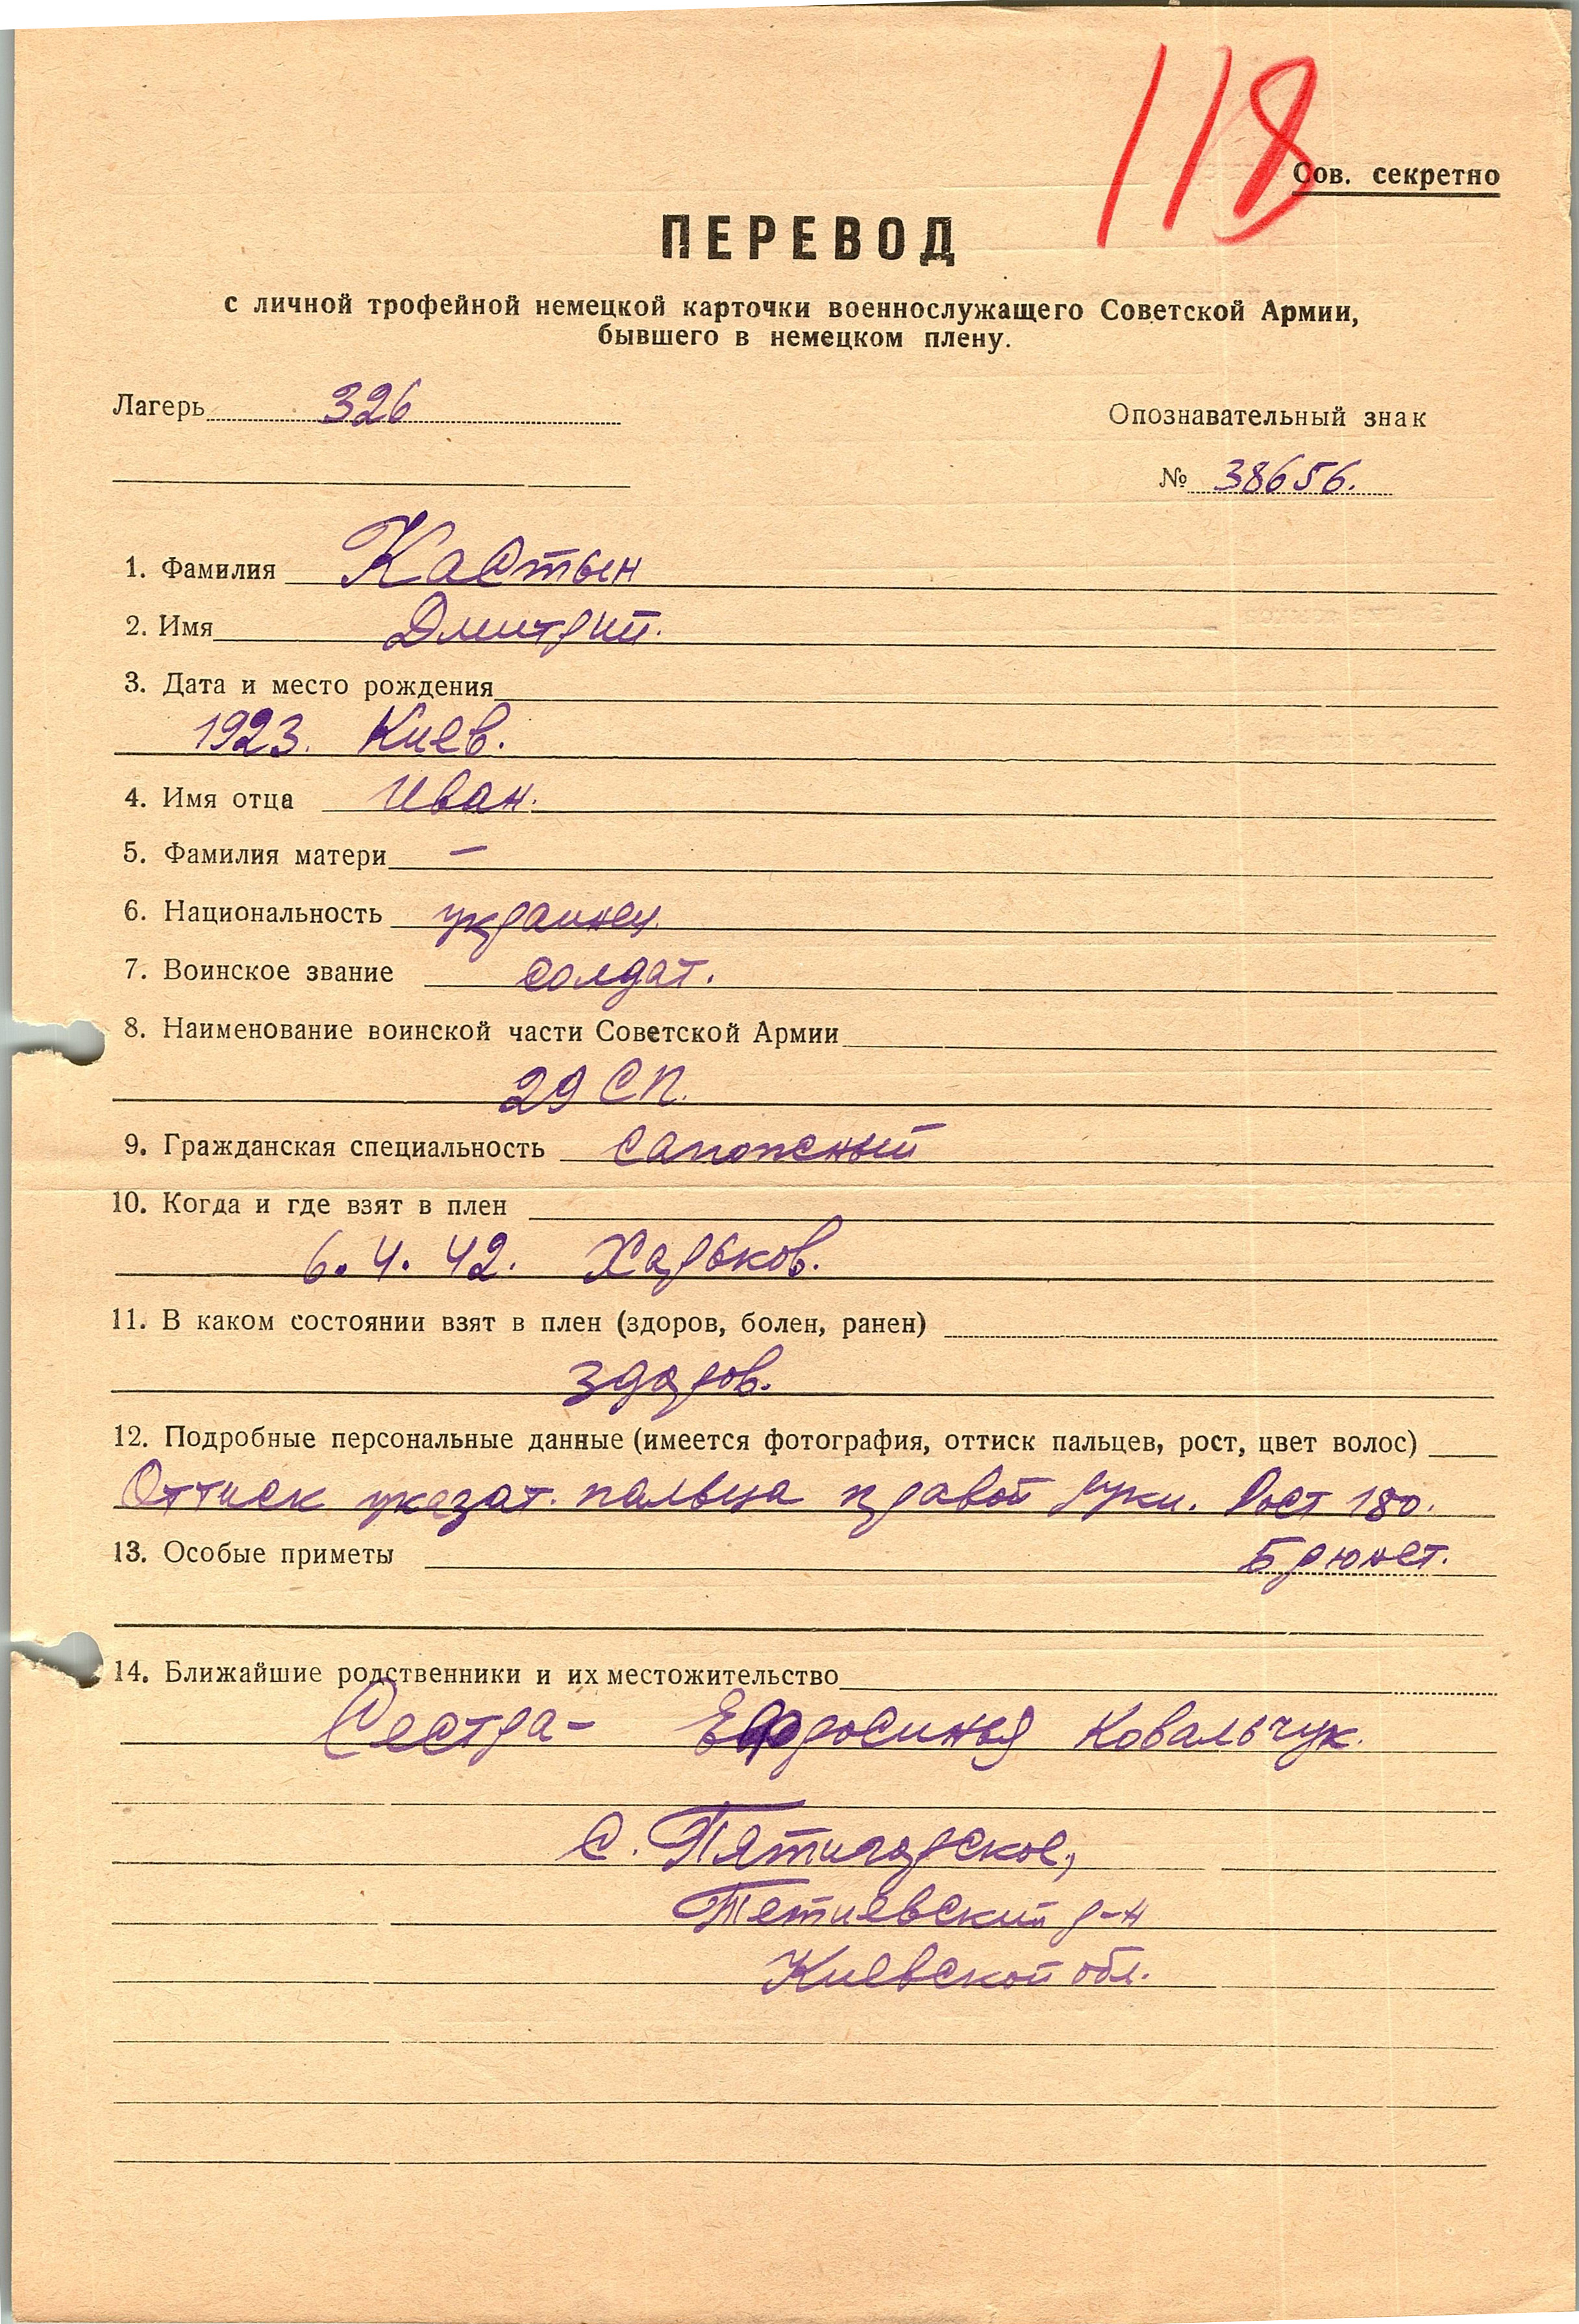 118
Сов. секретно
ПЕРЕВОД
с личной трофейной немецкой карточки военнослужащего Советской Армии,
бывшего в немецком плену.
Лагерь 326
Опознавательный знак
№ 38656.
1. Фамилия Кастын
2. Имя Дмитрий.
3. Дата и место рождения
1923. Киев.
4. Имя отца Иван.
5. Фамилия матери —
6. Национальность украинец.
7. Воинское звание солдат.
8. Наименование воинской части Советской Армии
29 СП.
9. Гражданская специальность сапожный
10. Когда и где взят в плен
6. 4. 42. Харьков.
11. В каком состоянии взят в плен (здоров, болен, ранен)
здоров.
12. Подробные персональные данные (имеется фотография, оттиск пальцев, рост, цвет волос)
Оттиск указат. пальца правой руки. Рост 180.
13. Особые приметы Брюнет.
14. Ближайшие родственники и их местожительство
Сестра – Ефросинья Ковальчук.
с. Пятигорское,
Тетиевский р-н
Киевской обл.